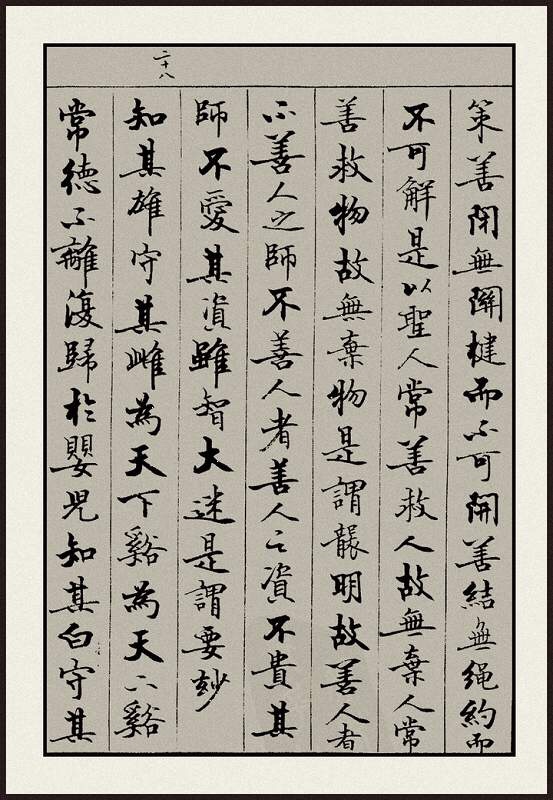 策善閉無關楗而不可開善結無繩約而
不可解是以聖人常善救人故無棄人常
善救物故無棄物是謂襲明故善人者
不善人之師不善人者善人之資不貴其
師不愛其資雖智大迷是謂要玅
二十八
知其雄守其雌為天下谿為天下谿
常德不離復歸於嬰兒知其白守其